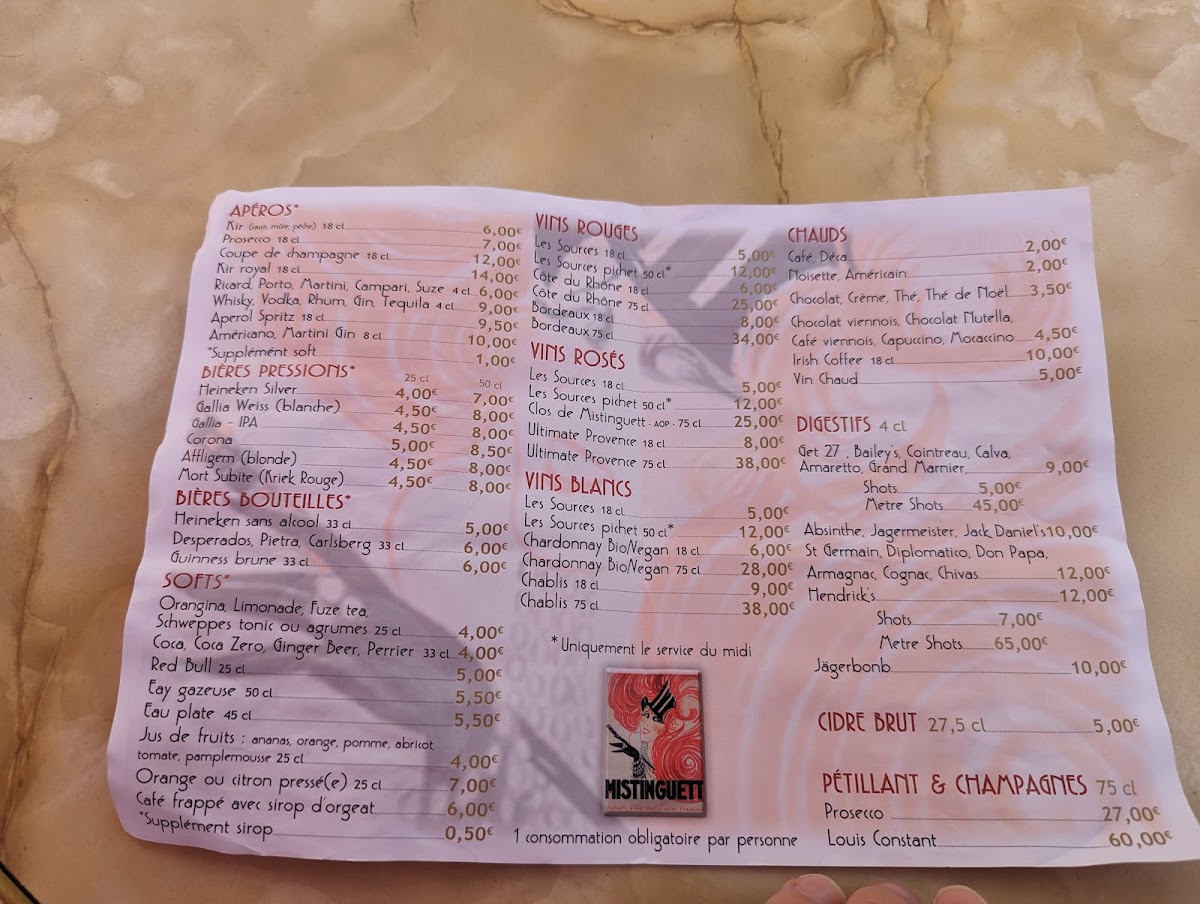 APÉROS*
Kir (cassis, mûre, pêche) 18 cl 6,00€
Prosecco 18 cl 7,00€
Coupe de champagne 18 cl 12,00€
Kir royal 18 cl 14,00€
Ricard, Porto, Martini, Campari, Suze 4 cl 6,00€
Whisky, Vodka, Rhum, Gin, Tequila 4 cl 9,00€
Aperol Spritz 18 cl 9,50€
Américano, Martini Gin 8 cl 10,00€
*Supplément soft 1,00€
BIÈRES PRESSIONS* 25 cl 50 cl
Heineken Silver 4,00€ 7,00€
Gallia Weiss (blanche) 4,50€ 8,00€
Gallia - IPA 4,50€ 8,00€
Corona 5,00€ 8,50€
Affligem (blonde) 4,50€ 8,00€
Mort Subite (Kriek Rouge) 4,50€ 8,00€
BIÈRES BOUTEILLES*
Heineken sans alcool 33 cl 5,00€
Desperados, Pietra, Carlsberg 33 cl 6,00€
Guinness brune 33 cl 6,00€
SOFTS*
Orangina, Limonade, Fuze tea,
Schweppes tonic ou agrumes 25 cl 4,00€
Coca, Coca Zero, Ginger Beer, Perrier 33 cl 4,00€
Red Bull 25 cl 5,00€
Eay gazeuse 50 cl 5,50€
Eau plate 45 cl 5,50€
Jus de fruits : ananas, orange, pomme, abricot,
tomate, pamplemousse 25 cl 4,00€
Orange ou citron pressé(e) 25 cl 7,00€
Café frappé avec sirop d'orgeat 6,00€
*Supplément sirop 0,50€
VINS ROUGES
Les Sources 18 cl 5,00€
Les Sources pichet 50 cl* 12,00€
Côte du Rhône 18 cl 6,00€
Côte du Rhône 75 cl 25,00€
Bordeaux 18 cl 8,00€
Bordeaux 75 cl 34,00€
VINS ROSÉS
Les Sources 18 cl 5,00€
Les Sources pichet 50 cl* 12,00€
Clos de Mistinguett - AOP - 75 cl 25,00€
Ultimate Provence 18 cl 8,00€
Ultimate Provence 75 cl 38,00€
VINS BLANCS
Les Sources 18 cl 5,00€
Les Sources pichet 50 cl* 12,00€
Chardonnay Bio/Vegan 18 cl 6,00€
Chardonnay Bio/Vegan 75 cl 28,00€
Chablis 18 cl 9,00€
Chablis 75 cl 38,00€
*Uniquement le service du midi
MISTINGUETT
1 consommation obligatoire par personne
CHAUDS
Café, Déca 2,00€
Noisette, Américain 2,00€
Chocolat, Crème, Thé, Thé de Noël 3,50€
Chocolat viennois, Chocolat Nutella,
Café viennois, Capuccino, Mocaccino 4,50€
Irish Coffee 18 cl 10,00€
Vin Chaud 5,00€
DIGESTIFS 4 cl
Get 27 , Bailey's, Cointreau, Calva,
Amaretto, Grand Marnier, 9,00€
Shots 5,00€
Metre Shots 45,00€
Absinthe, Jagermeister, Jack Daniel's 10,00€
St Germain, Diplomatico, Don Papa,
Armagnac, Cognac, Chivas 12,00€
Hendrick's 12,00€
Shots 7,00€
Metre Shots 65,00€
Jägerbonb 10,00€
CIDRE BRUT 27,5 cl 5,00€
PÉTILLANT & CHAMPAGNES 75 cl
Prosecco 27,00€
Louis Constant 60,00€